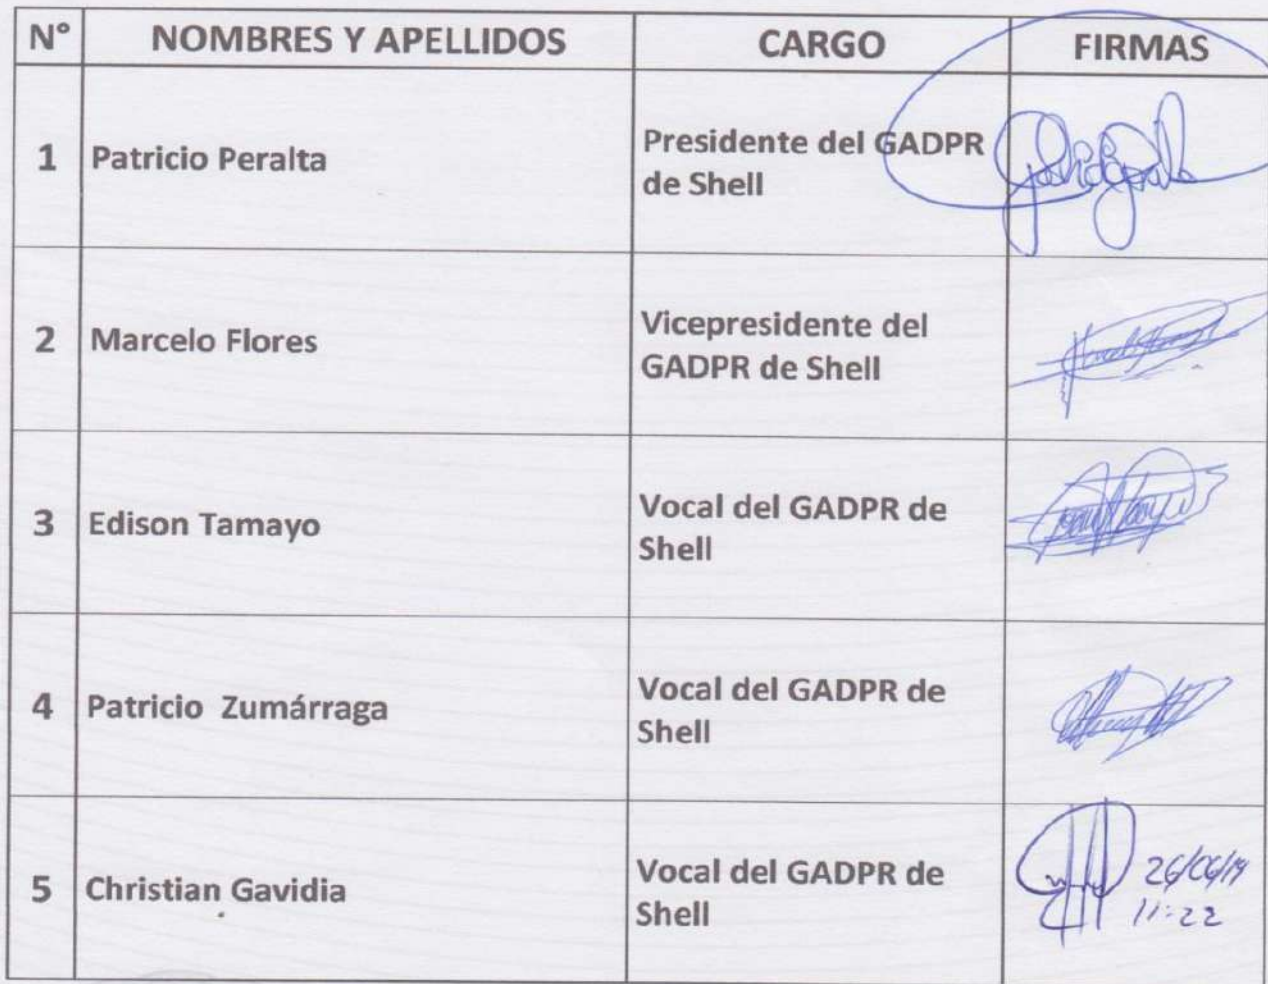 N° NOMBRES Y APELLIDOS CARGO FIRMAS
1 Patricio Peralta Presidente del GADPR
de Shell
2 Marcelo Flores Vicepresidente del
GADPR de Shell
3 Edison Tamayo Vocal del GADPR de
Shell
4 Patricio Zumárraga Vocal del GADPR de
Shell
5 Christian Gavidia Vocal del GADPR de
Shell
26/06/19
11:22